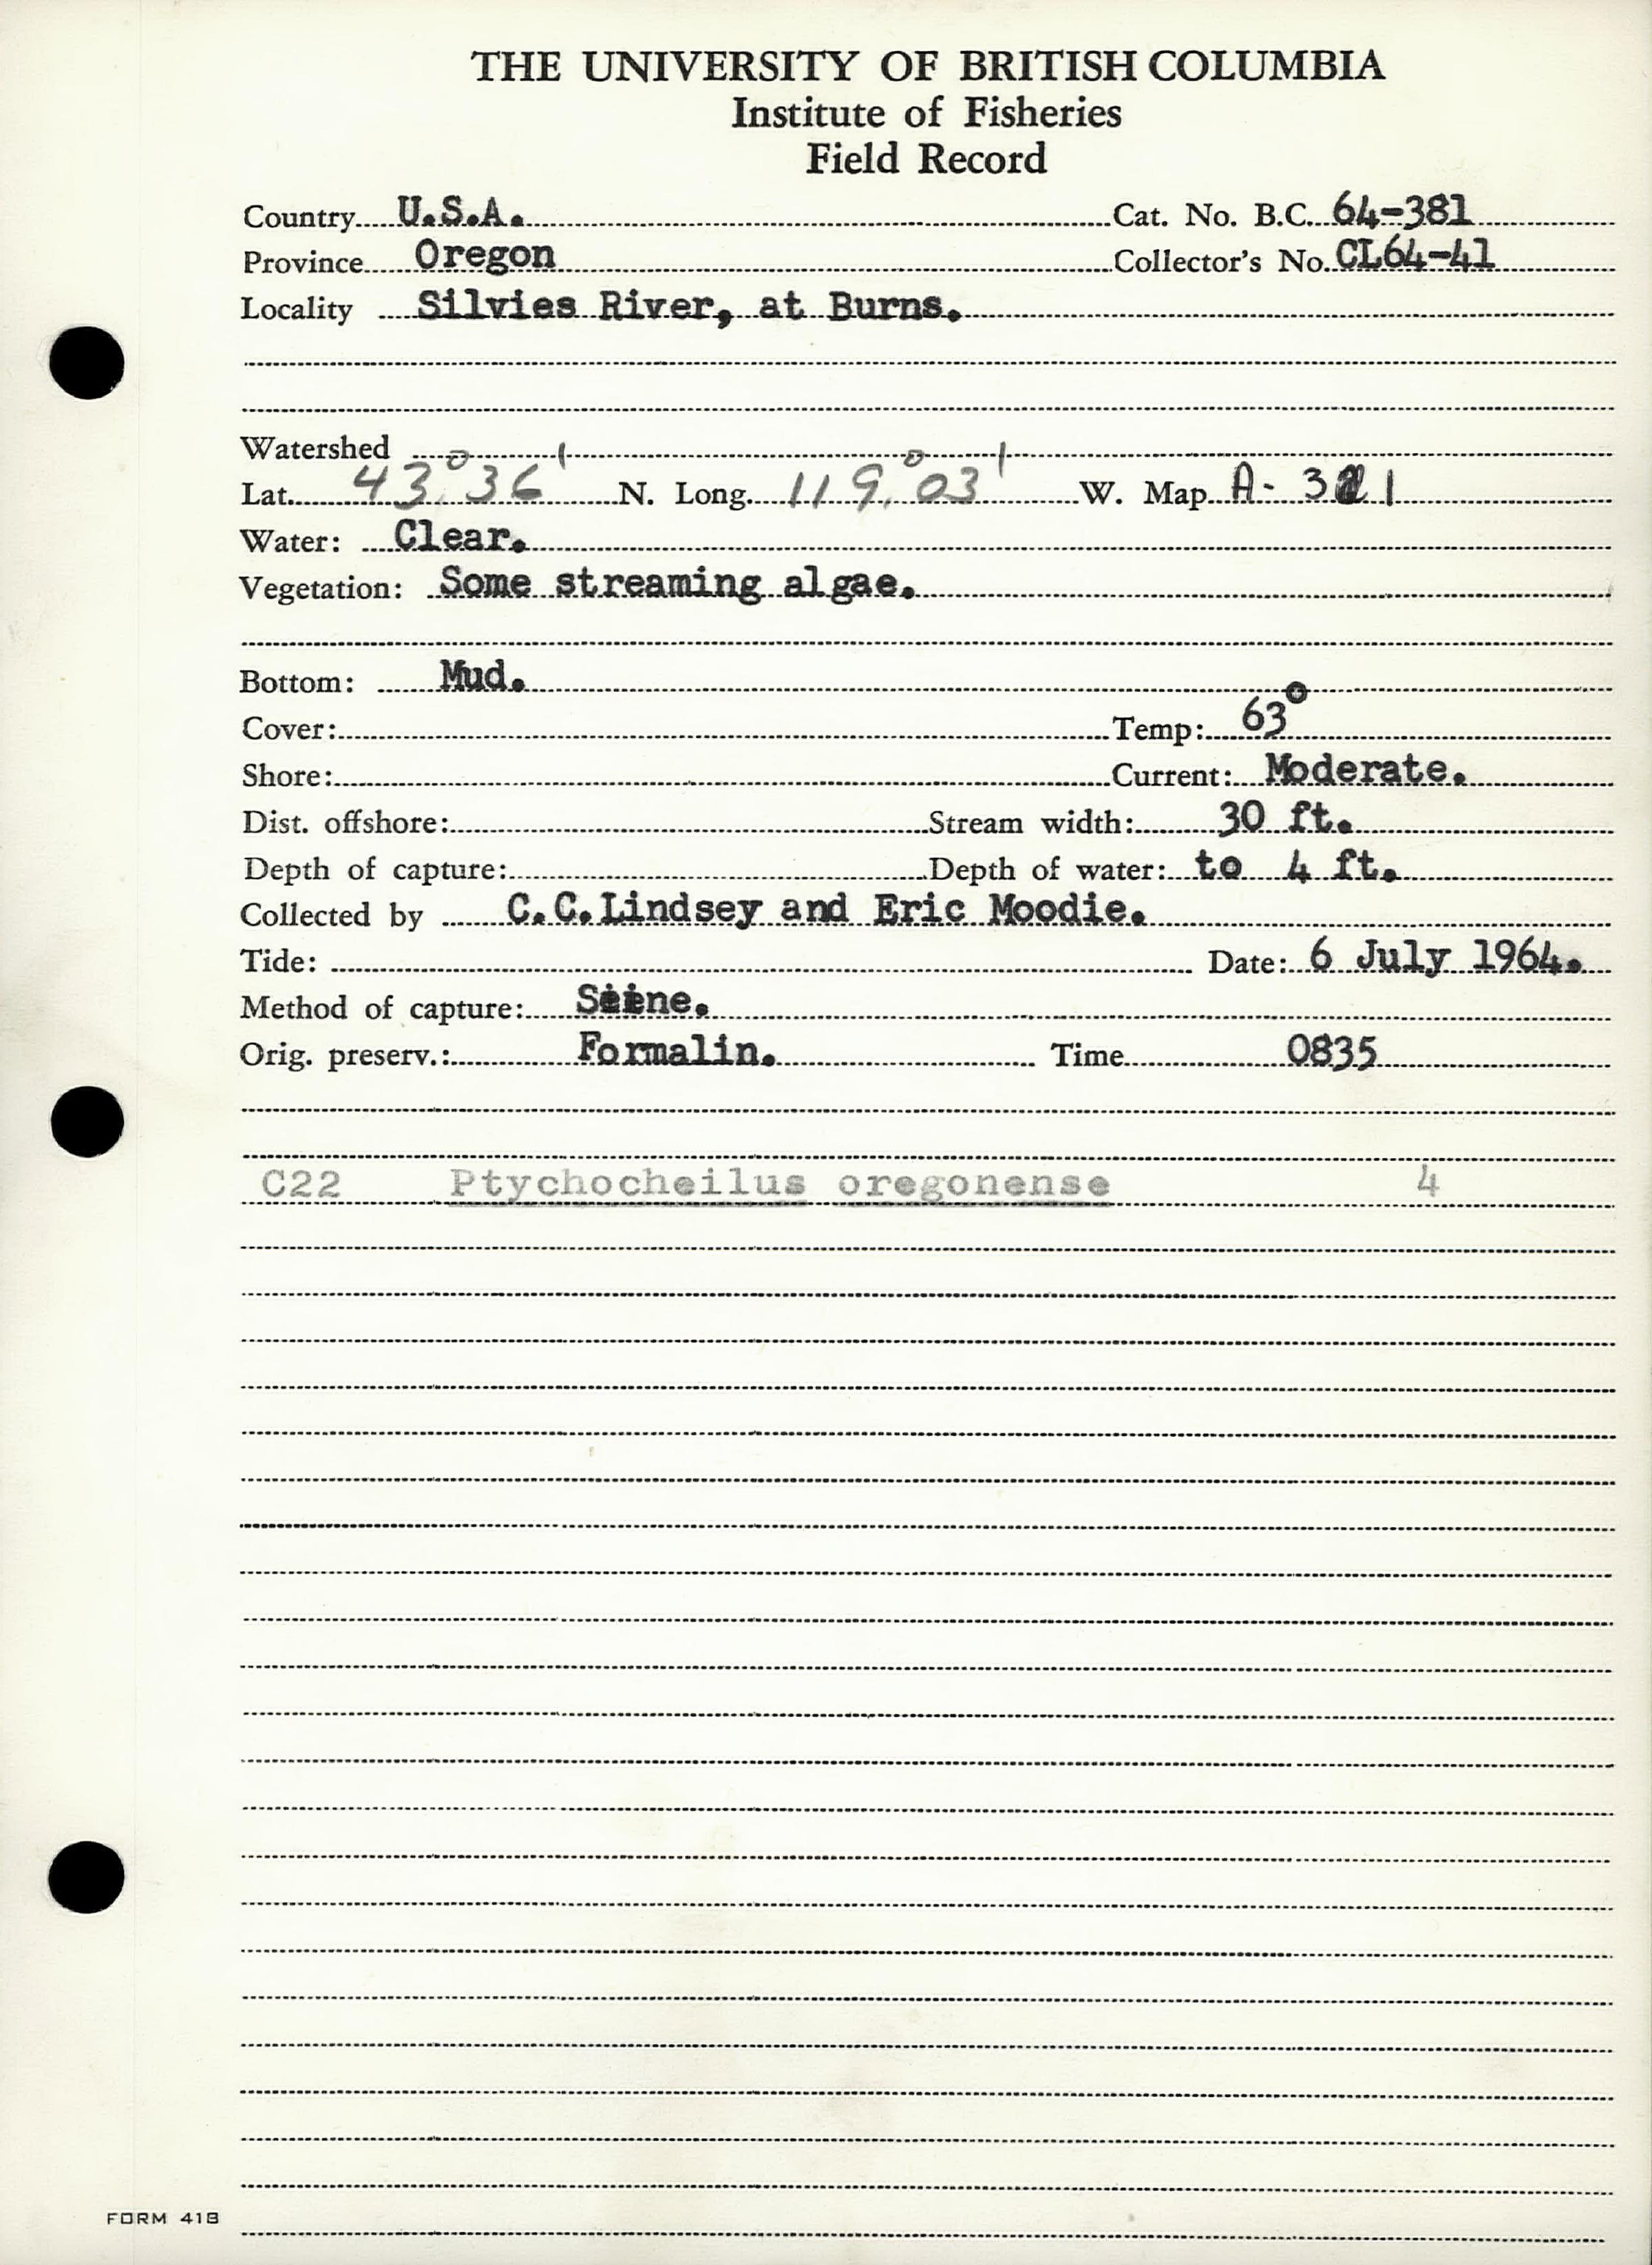 THE UNIVERSITY OF BRITISH COLUMBIA
Institute of Fisheries
Field Record
Country U.S.A. Cat. No. B.C. 64-381
Province Oregon Collector's No. CL64-41
Locality Silvies River, at Burns.
Watershed
Lat. 43° 36' N. Long. 119° 03' W. Map A- 3 1
Water: Clear.
Vegetation: Some streaming algae.
Bottom: Mud.
Cover: Temp: 63°
Shore: Current: Moderate.
Dist. offshore: Stream width: 30 ft.
Depth of capture: Depth of water: to 4 ft.
Collected by C.C.Lindsey and Eric Moodie.
Tide: Date: 6 July 1964.
Method of capture: Seine.
Orig. preserv.: Formalin. Time 0835
C22 Ptychocheilus oregonense 4
FORM 41B